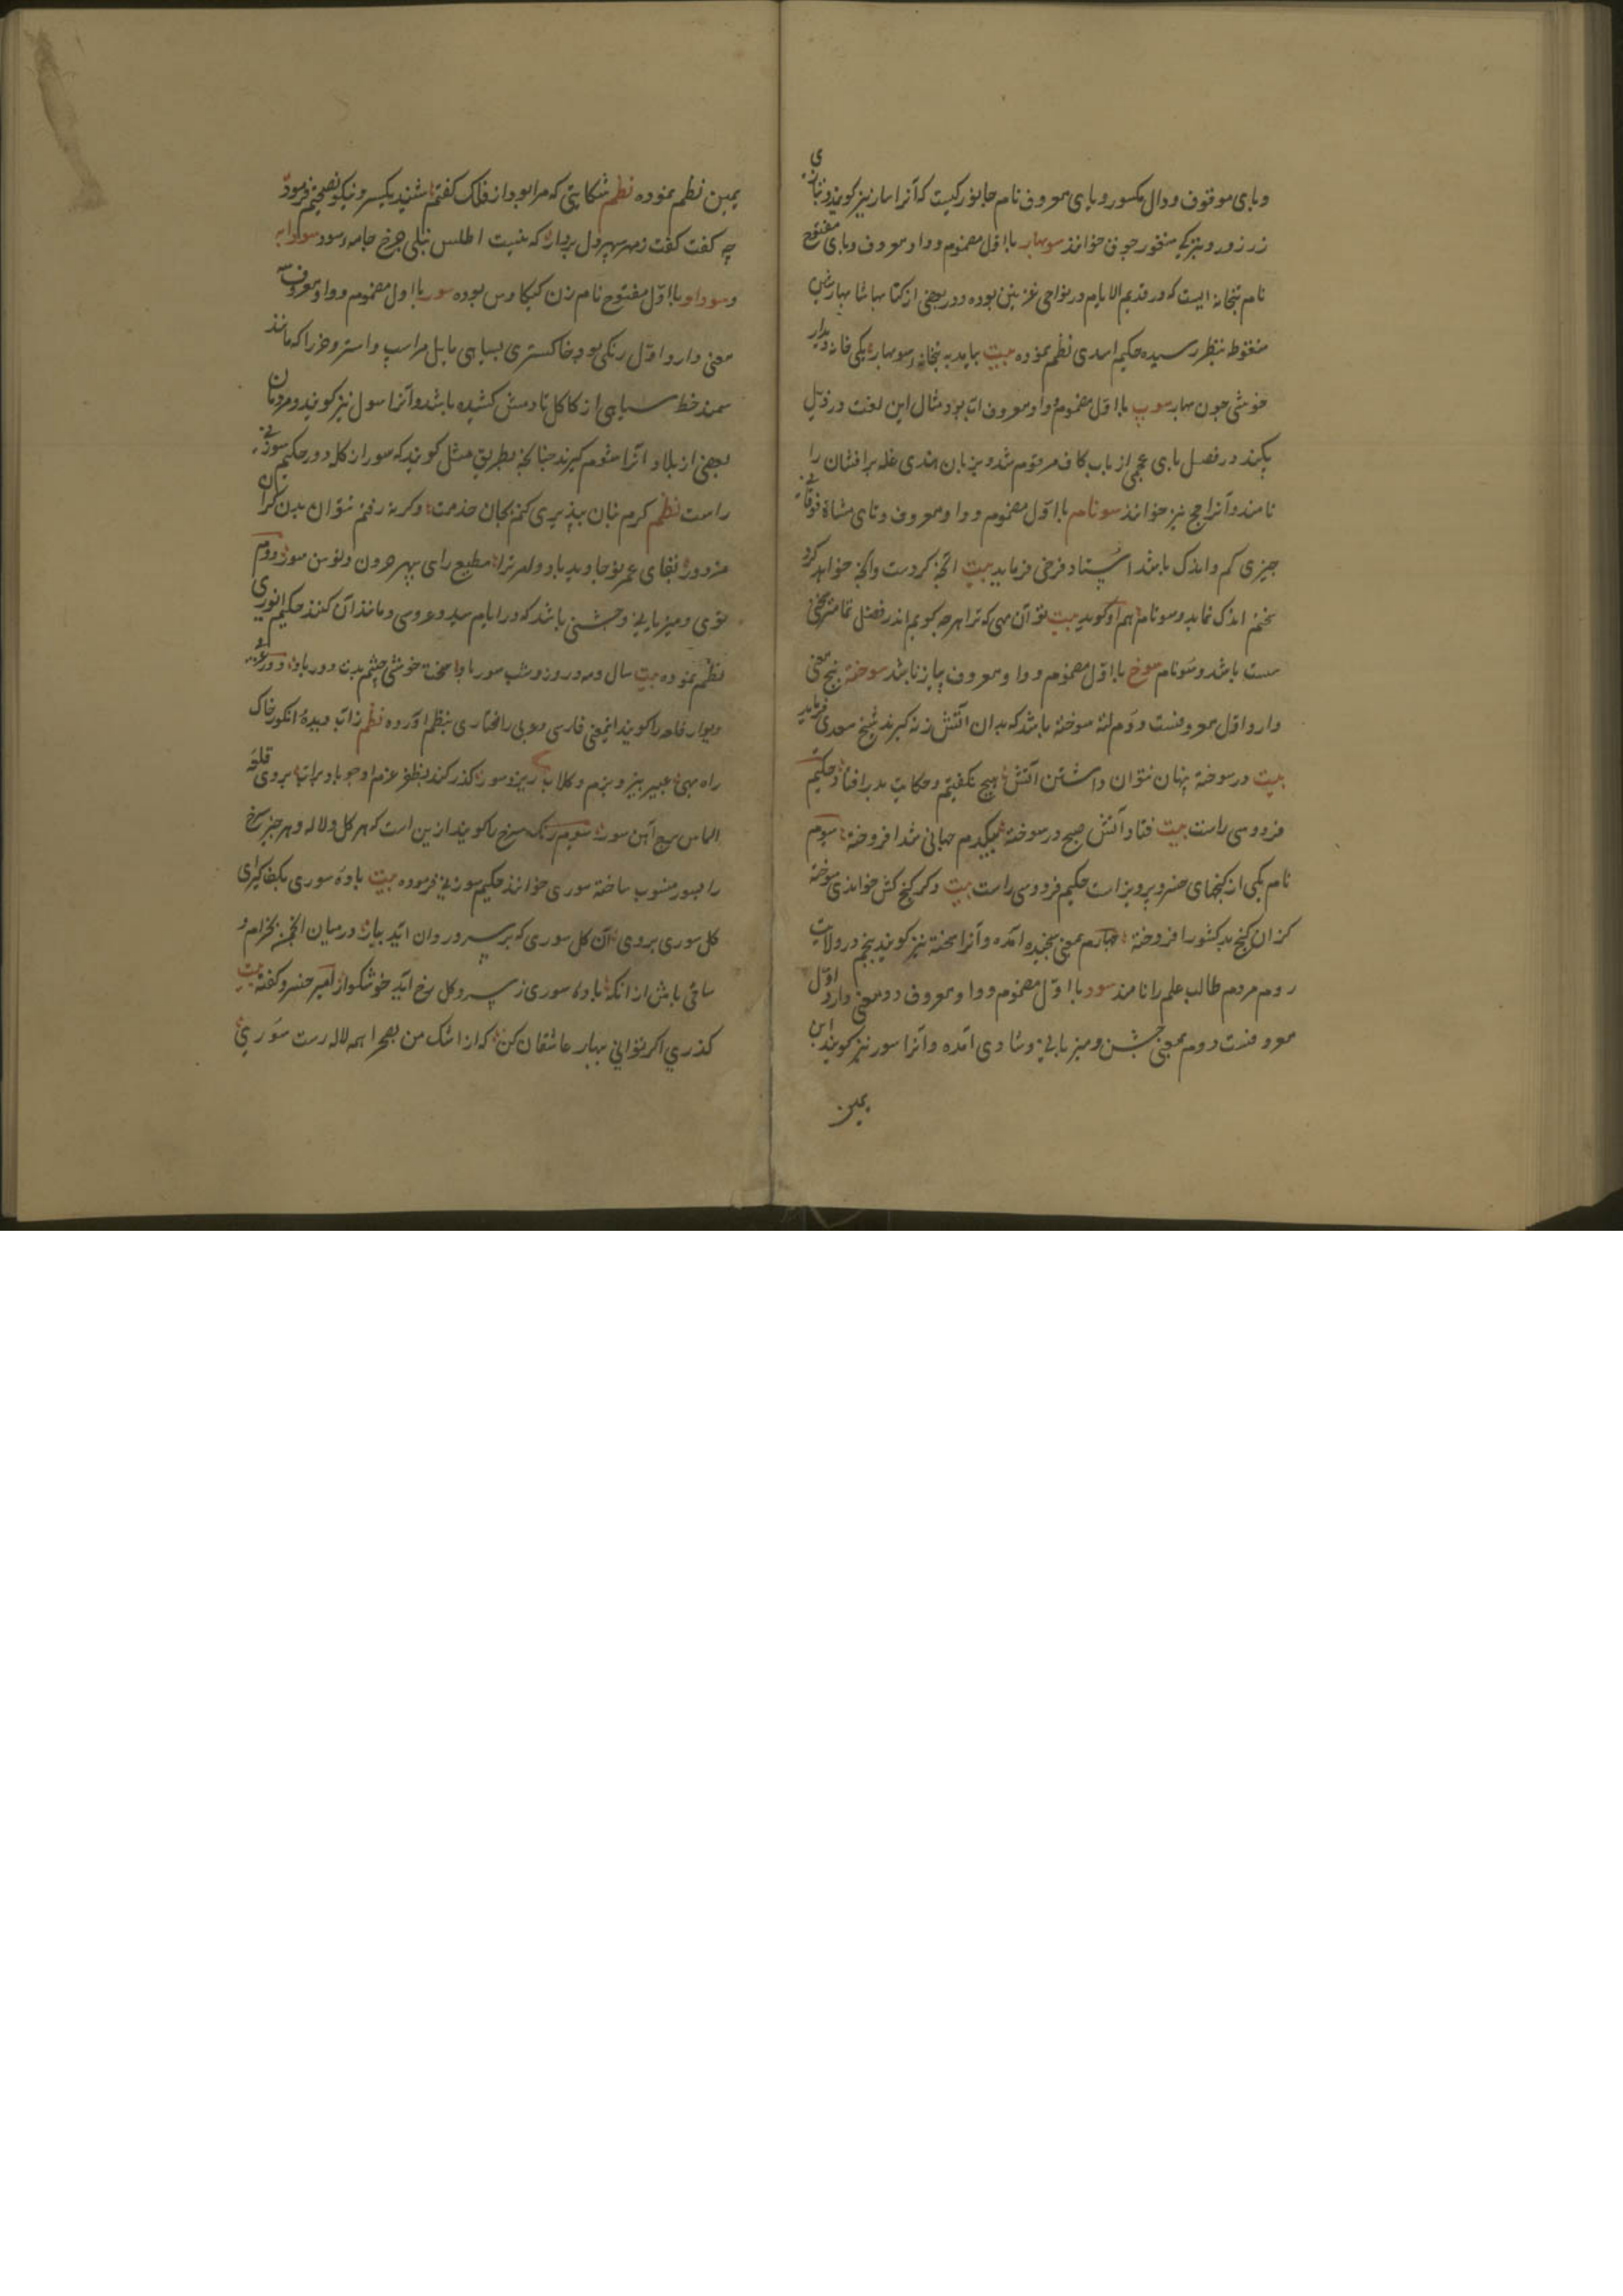 و بای موقوف و دال مکسور و یای معروف نام جانوریست که آنرا سار نیز کویند و بتازی
زرزور و بترکی سغورجوق خوانند سوبهار با اول مضموم و واو معروف و بای مفتوح
نام بتخانه ایست که در قدیم الایام در نواحی غزنین بوده و در بعضی از کتابها شابهار بشین
منقوط بنظر رسیده حکیم اسدی نظم نموده بیت بیامد به بتخانه سوبهار یکی خانه دیدار
خوشی چون بهار سوپ با اول مضموم و واو معروف اب بود مثال این لغت در ذیل
پکند در فصل بای عجمی از باب کاف مرقوم شد و بزبان هندی غله برافشان را
نامند و آنرا چج نیز خوانند سوتام با اول مضموم و واو معروف و تای مثناة فوقانی
چیزی کم و اندک باشد استاد فرخی فرماید بیت انچه کردست وانچه خواهد کرد
سخنم اندک نماید و سوتام هم او کوید بیت تو آن مهی که ترا هرچه کویم اندر فضل تمامتر سخنی
سست باشد و سوتام سوخ با اول مضموم و واو معروف پیاز باشد سوخته پنج معنی
دارد اول معروفست دوم لته سوخته باشد که بدان آتش زنه کیرند شیخ سعدی فرماید
بیت در سوخته پنهان نتوان داشتن آتش هیچ نکفتیم و حکایت بدر افتاد حکیم
فردوسی راست بیت فتاد آتش صبح در سوخته بیکدم جهانی شد افروخته سیوم
نام یکی از کنجهای خسرو پرویز است حکیم فردوسی راست بیت دکر کنج کش خواندی سوخته
کزان کنج بد کشور افروخته چهارم بمعنی سنجیده آمده و آنرا سخته نیز کویند پنجم در ولایت
روم مردم طالب علم را نامند سور با اول مضموم و واو معروف دو معنی دارد اول
معروفست دوم بمعنی جشن و میزبانی و شادی آمده و آنرا سور نیز کویند ابن
یمین
یمین نظم نموده نظم شکایتی که مرا بود از فلک کفتم شنید یکسر و نیکو نصیحتم فرمود
چه کفت کفت زمهر سپهر دل بردار که نیست اطلس نیلی چرخ جامه سود سودابه
و سوداوه با اول مفتوح نام زن کیکاوس بوده سور با اول مضموم و واو معروف سه
معنی دارد اول رنکی بود خاکستری بسیاهی مایل مر اسپ و استر و خر را که مانند
سمند خط سیاهی از کاکل تا دمش کشیده باشد و آنرا سول نیز کویند و مردمان
بعضی از بلاد انرا مشوم کیرند چنانچه بطریق مثل کویند که سور از کله دور حکیم سوزنی
راست نظم کرم بنان بپذیری کنم بجان خدمت وکرنه رفتم نتوان بدین کران
مزدور بقای عمر تو جاوید باد و امر ترا مطیع رای سپهر حرون و توسن سور دوم
توی و میزبانی و جشنی باشد که در ایام عید و عروسی و مانند آن کنند حکیم انوری
نظم نموده بیت سال و مه و روز و شب سور باد اسخت خوشی چشم بدت دور باد و در عربی
دیوار قلعه را کویند اینمعنی فارسی و عربی را مختاری بنظم آورده نظم زآب دیدهٔ انکور خاک
راه بهی عبیر بیز و بزم و کلاب ریز و سور کذر کند بظفر عزم او چو باد براتب بروی قلعه
الماس برج آهن سور سیوم رنک سرخ را کویند ازین است که هر کل و لاله و هر چیز سرخ
را بسور منسوب ساخته سوری خوانند حکیم سوزنی فرموده بیت بادهٔ سوری بکف کرای
کل سوری بروی آن کل سوری که بر سرو روان آید ببار در میان انجمن بخرام و
ساقی باش از انکه بادهٔ سوری ز سرو کل رخ آید خوشکوار امیر خسرو کفته بیت
کذری اکر توانی بهار عاشقان کن که از اشک من بصحرا همه لاله رست سوری